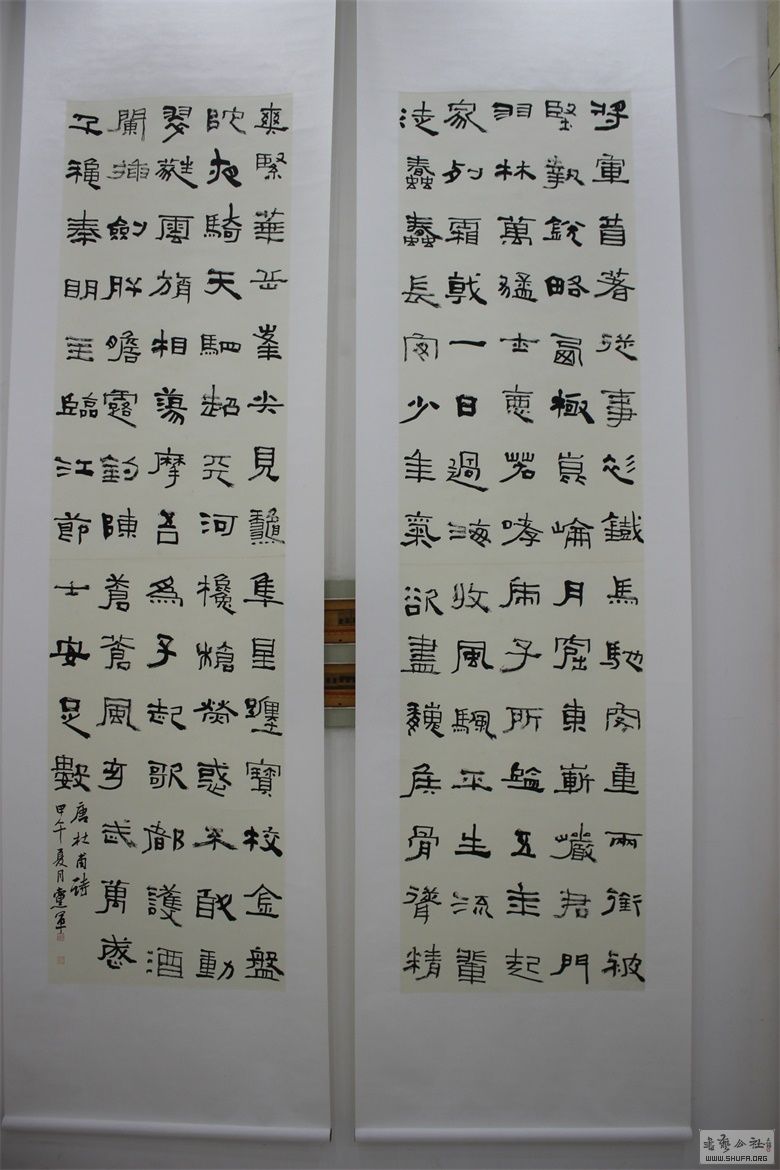 將軍昔著從事衫鐵馬馳突重兩銜被
堅執銳略西極崑崙月窟東嶄巖君門
羽林萬猛士惡若哮虎子所監五年起
家列霜戟一日過海收風颿平生流輩
徒蠢蠢長安少年氣欲盡魏侯骨聳精
爽緊華岳峯尖見龝隼星躔寶校金盤
陀夜騎天駟超天河欃槍熒惑不敢動
翠蕤雲旓相蕩摩吾為子起歌都護酒
闌插劍肝膽露鉤陳蒼蒼風玄武萬歲
千穐奉明主臨江節士安足數
唐杜甫詩
甲午夏月軍
書藝公社
WWW.SHUFA.ORG